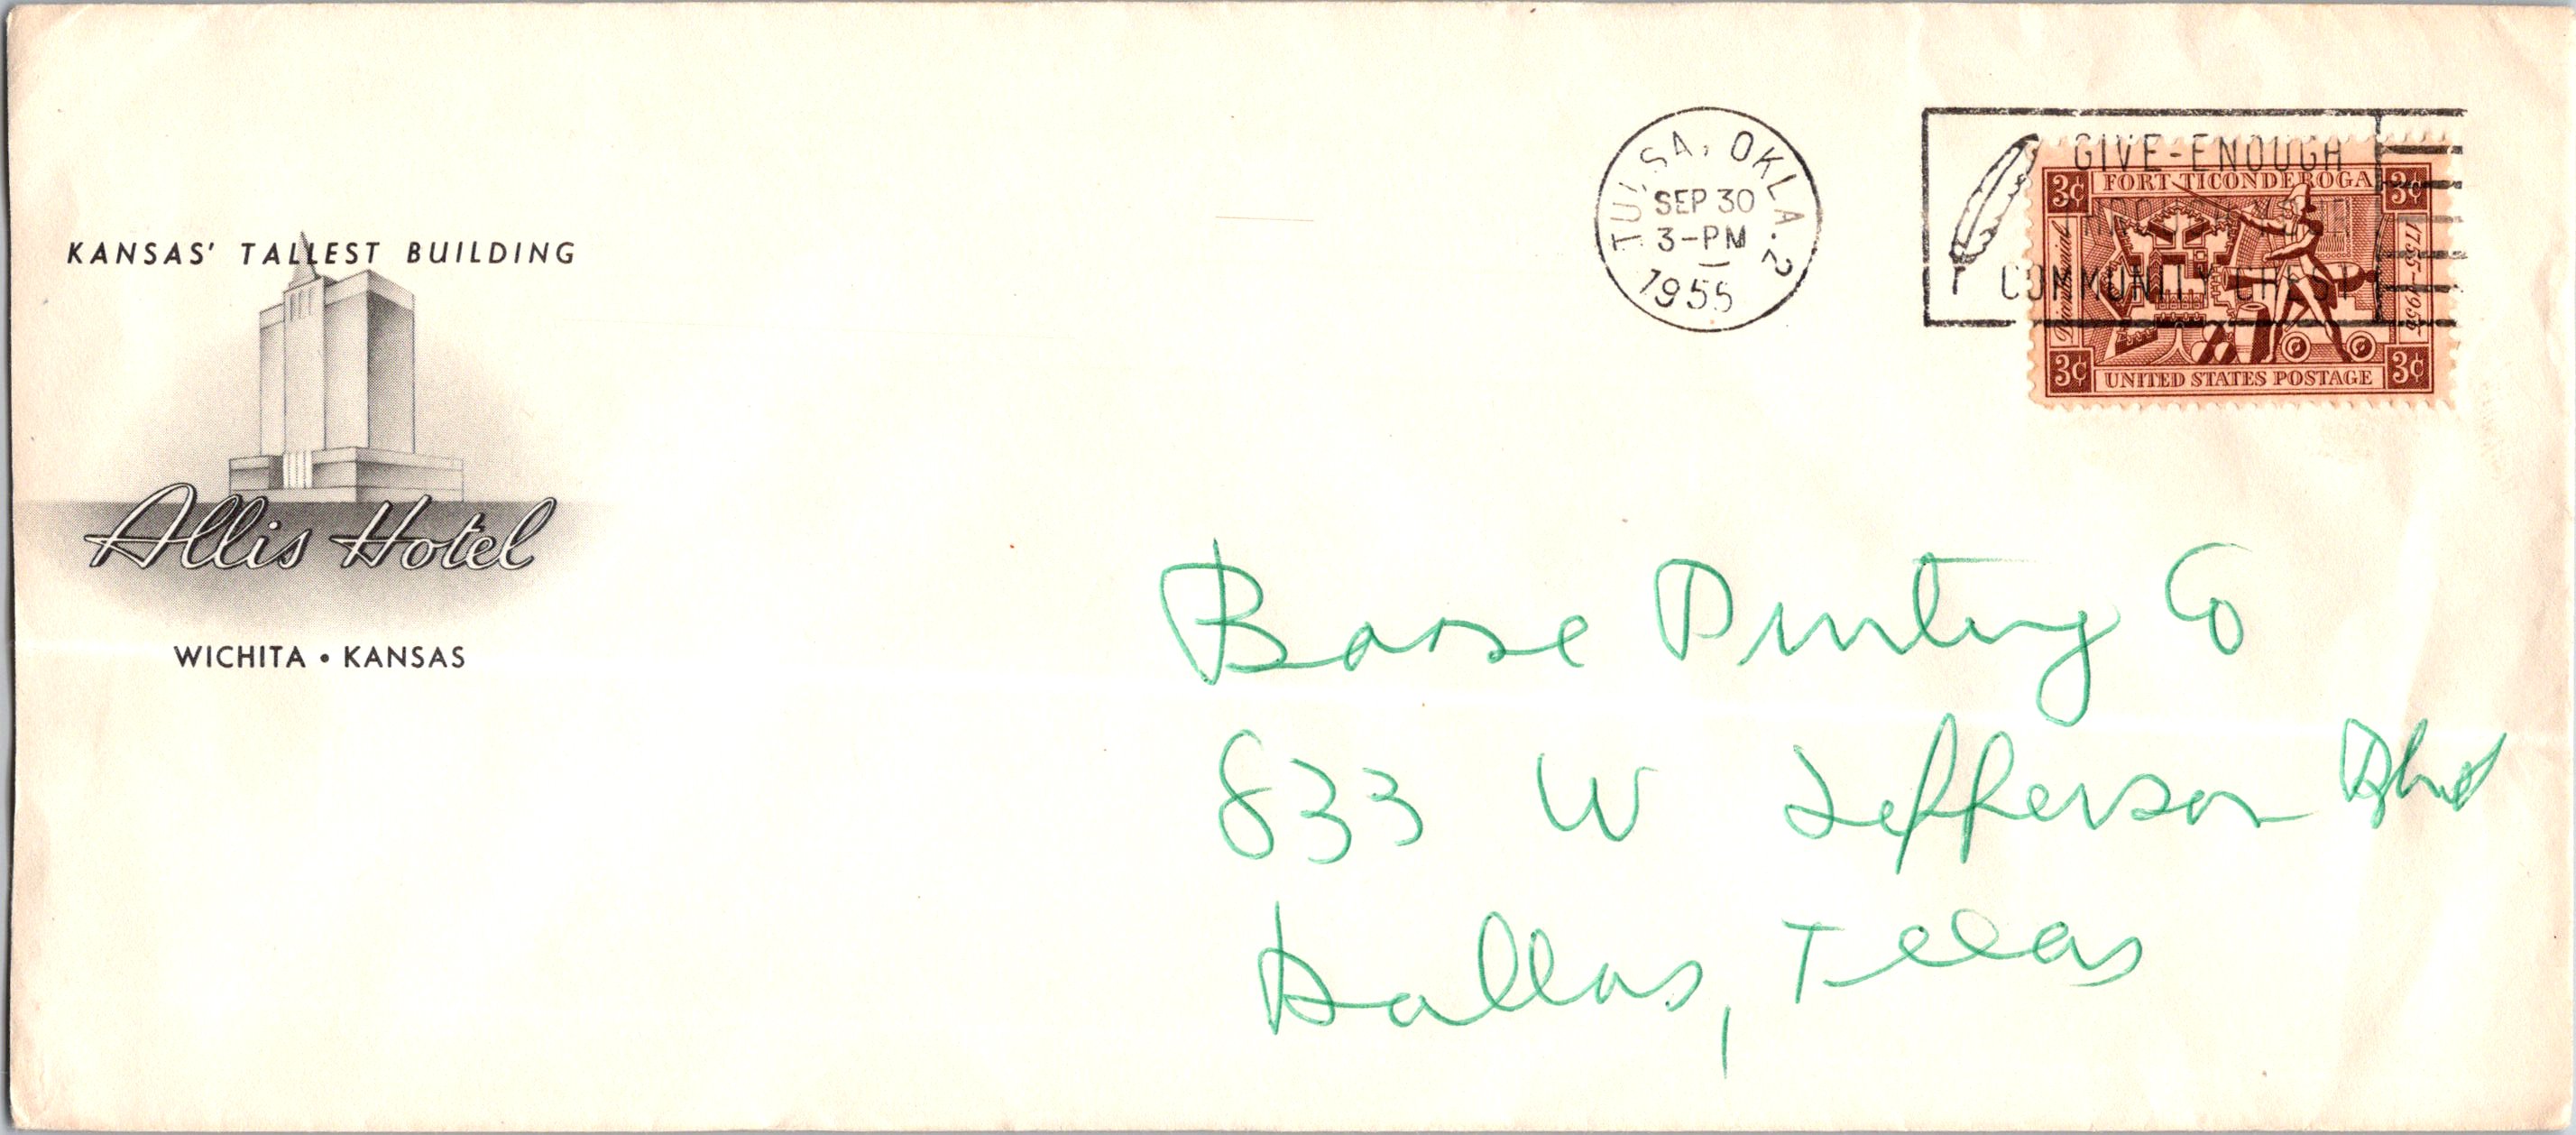 KANSAS' TALLEST BUILDING
Allis Hotel
WICHITA • KANSAS
TULSA, OKLA. 2
SEP 30
3-PM
1955
GIVE-ENOUGH
COMMUNITY CHEST
3¢ FORT TICONDEROGA 3¢
Bicentennial
1755-1955
3¢ UNITED STATES POSTAGE 3¢
Printing Co
833 W Jefferson Blvd
Dallas, Texas